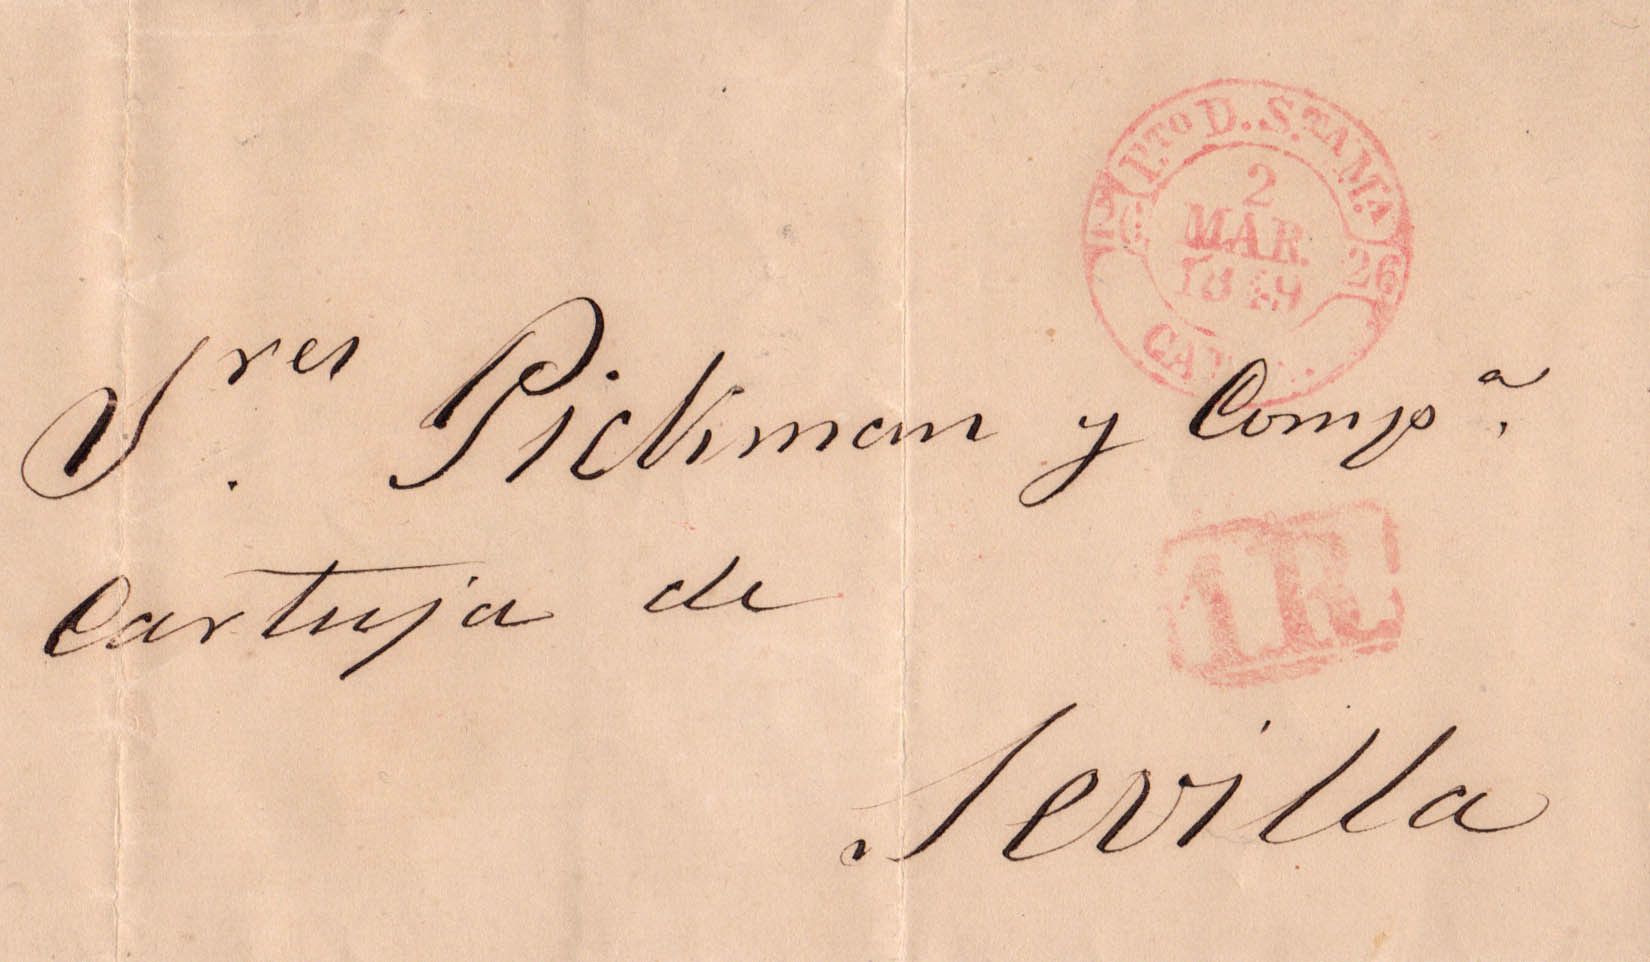 P.to D. S.ta M.a
26 26
2
MAR.
1849
Sres. Pickman y Comp.a
Cartuja de
1R.
Sevilla